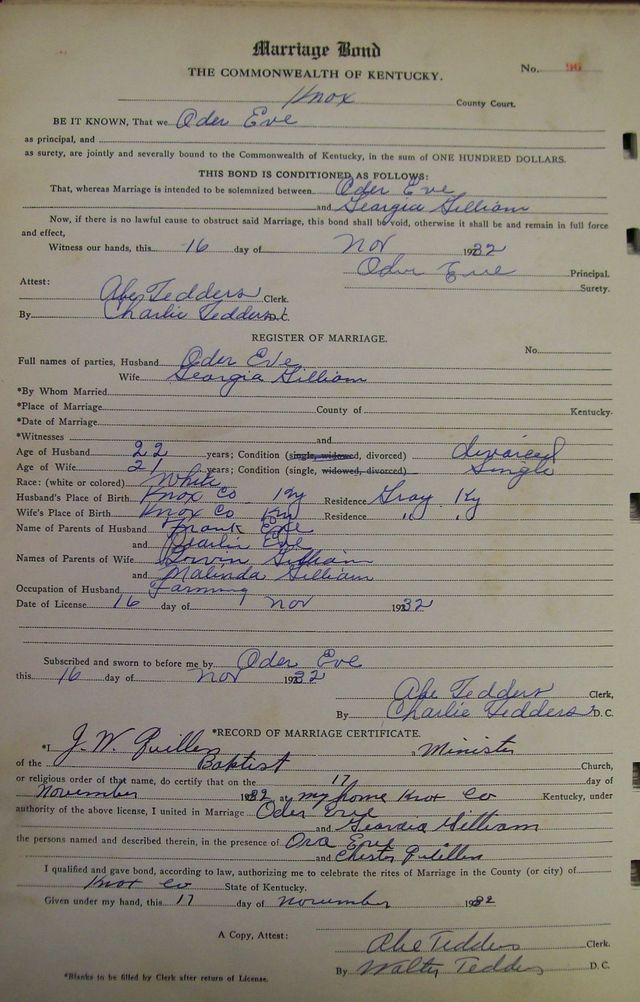 Marriage Bond
THE COMMONWEALTH OF KENTUCKY.
No. 96
Knox County Court.
BE IT KNOWN, That we Oder Eve
as principal, and
as surety, are jointly and severally bound to the Commonwealth of Kentucky, in the sum of ONE HUNDRED DOLLARS.
THIS BOND IS CONDITIONED AS FOLLOWS:
That, whereas Marriage is intended to be solemnized between Oder Eve
and Georgia Gilliam
Now, if there is no lawful cause to obstruct said Marriage, this bond shall be void, otherwise it shall be and remain in full force
and effect,
Witness our hands, this 16 day of Nov 1932
Oder Eve Principal.
Surety.
Attest:
Abe Tedders Clerk.
By Charlie Tedders D.C.
REGISTER OF MARRIAGE.
No.
Full names of parties, Husband Oder Eve
Wife Georgia Gilliam
*By Whom Married
*Place of Marriage County of Kentucky.
*Date of Marriage
*Witnesses and
Age of Husband 22 years; Condition (single, widowed, divorced) divorced
Age of Wife 21 years; Condition (single, widowed, divorced) Single
Race: (white or colored) White
Husband's Place of Birth Knox Co Ky Residence Gray Ky
Wife's Place of Birth Knox Co Ky Residence " "
Name of Parents of Husband Frank Eve
and Pearlie Eve
Names of Parents of Wife Gilliam
and Malinda Gilliam
Occupation of Husband Farming
Date of License 16 day of Nov 1932
Subscribed and sworn to before me by Oder Eve
this 16 day of Nov 1932
Abe Tedders Clerk,
By Charlie Tedders D. C.
*RECORD OF MARRIAGE CERTIFICATE.
*I J. W. Quillen a Minister
of the Baptist Church,
or religious order of that name, do certify that on the 17 day of
November 1932 at my home Knox Co Kentucky, under
authority of the above license, I united in Marriage Oder Eve
and Georgia Gilliam
the persons named and described therein, in the presence of Ora Eve
and Chester Quillen
I qualified and gave bond, according to law, authorizing me to celebrate the rites of Marriage in the County (or city) of
Knox Co State of Kentucky.
Given under my hand, this 17 day of November 1932
A Copy, Attest:
Abe Tedders Clerk.
By Walter Tedders D. C.
*Blanks to be filled by Clerk after return of License.